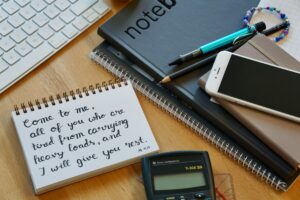 notebo
Come to me,
all of you who are
tired from carrying
heavy loads, and
I will give you rest.